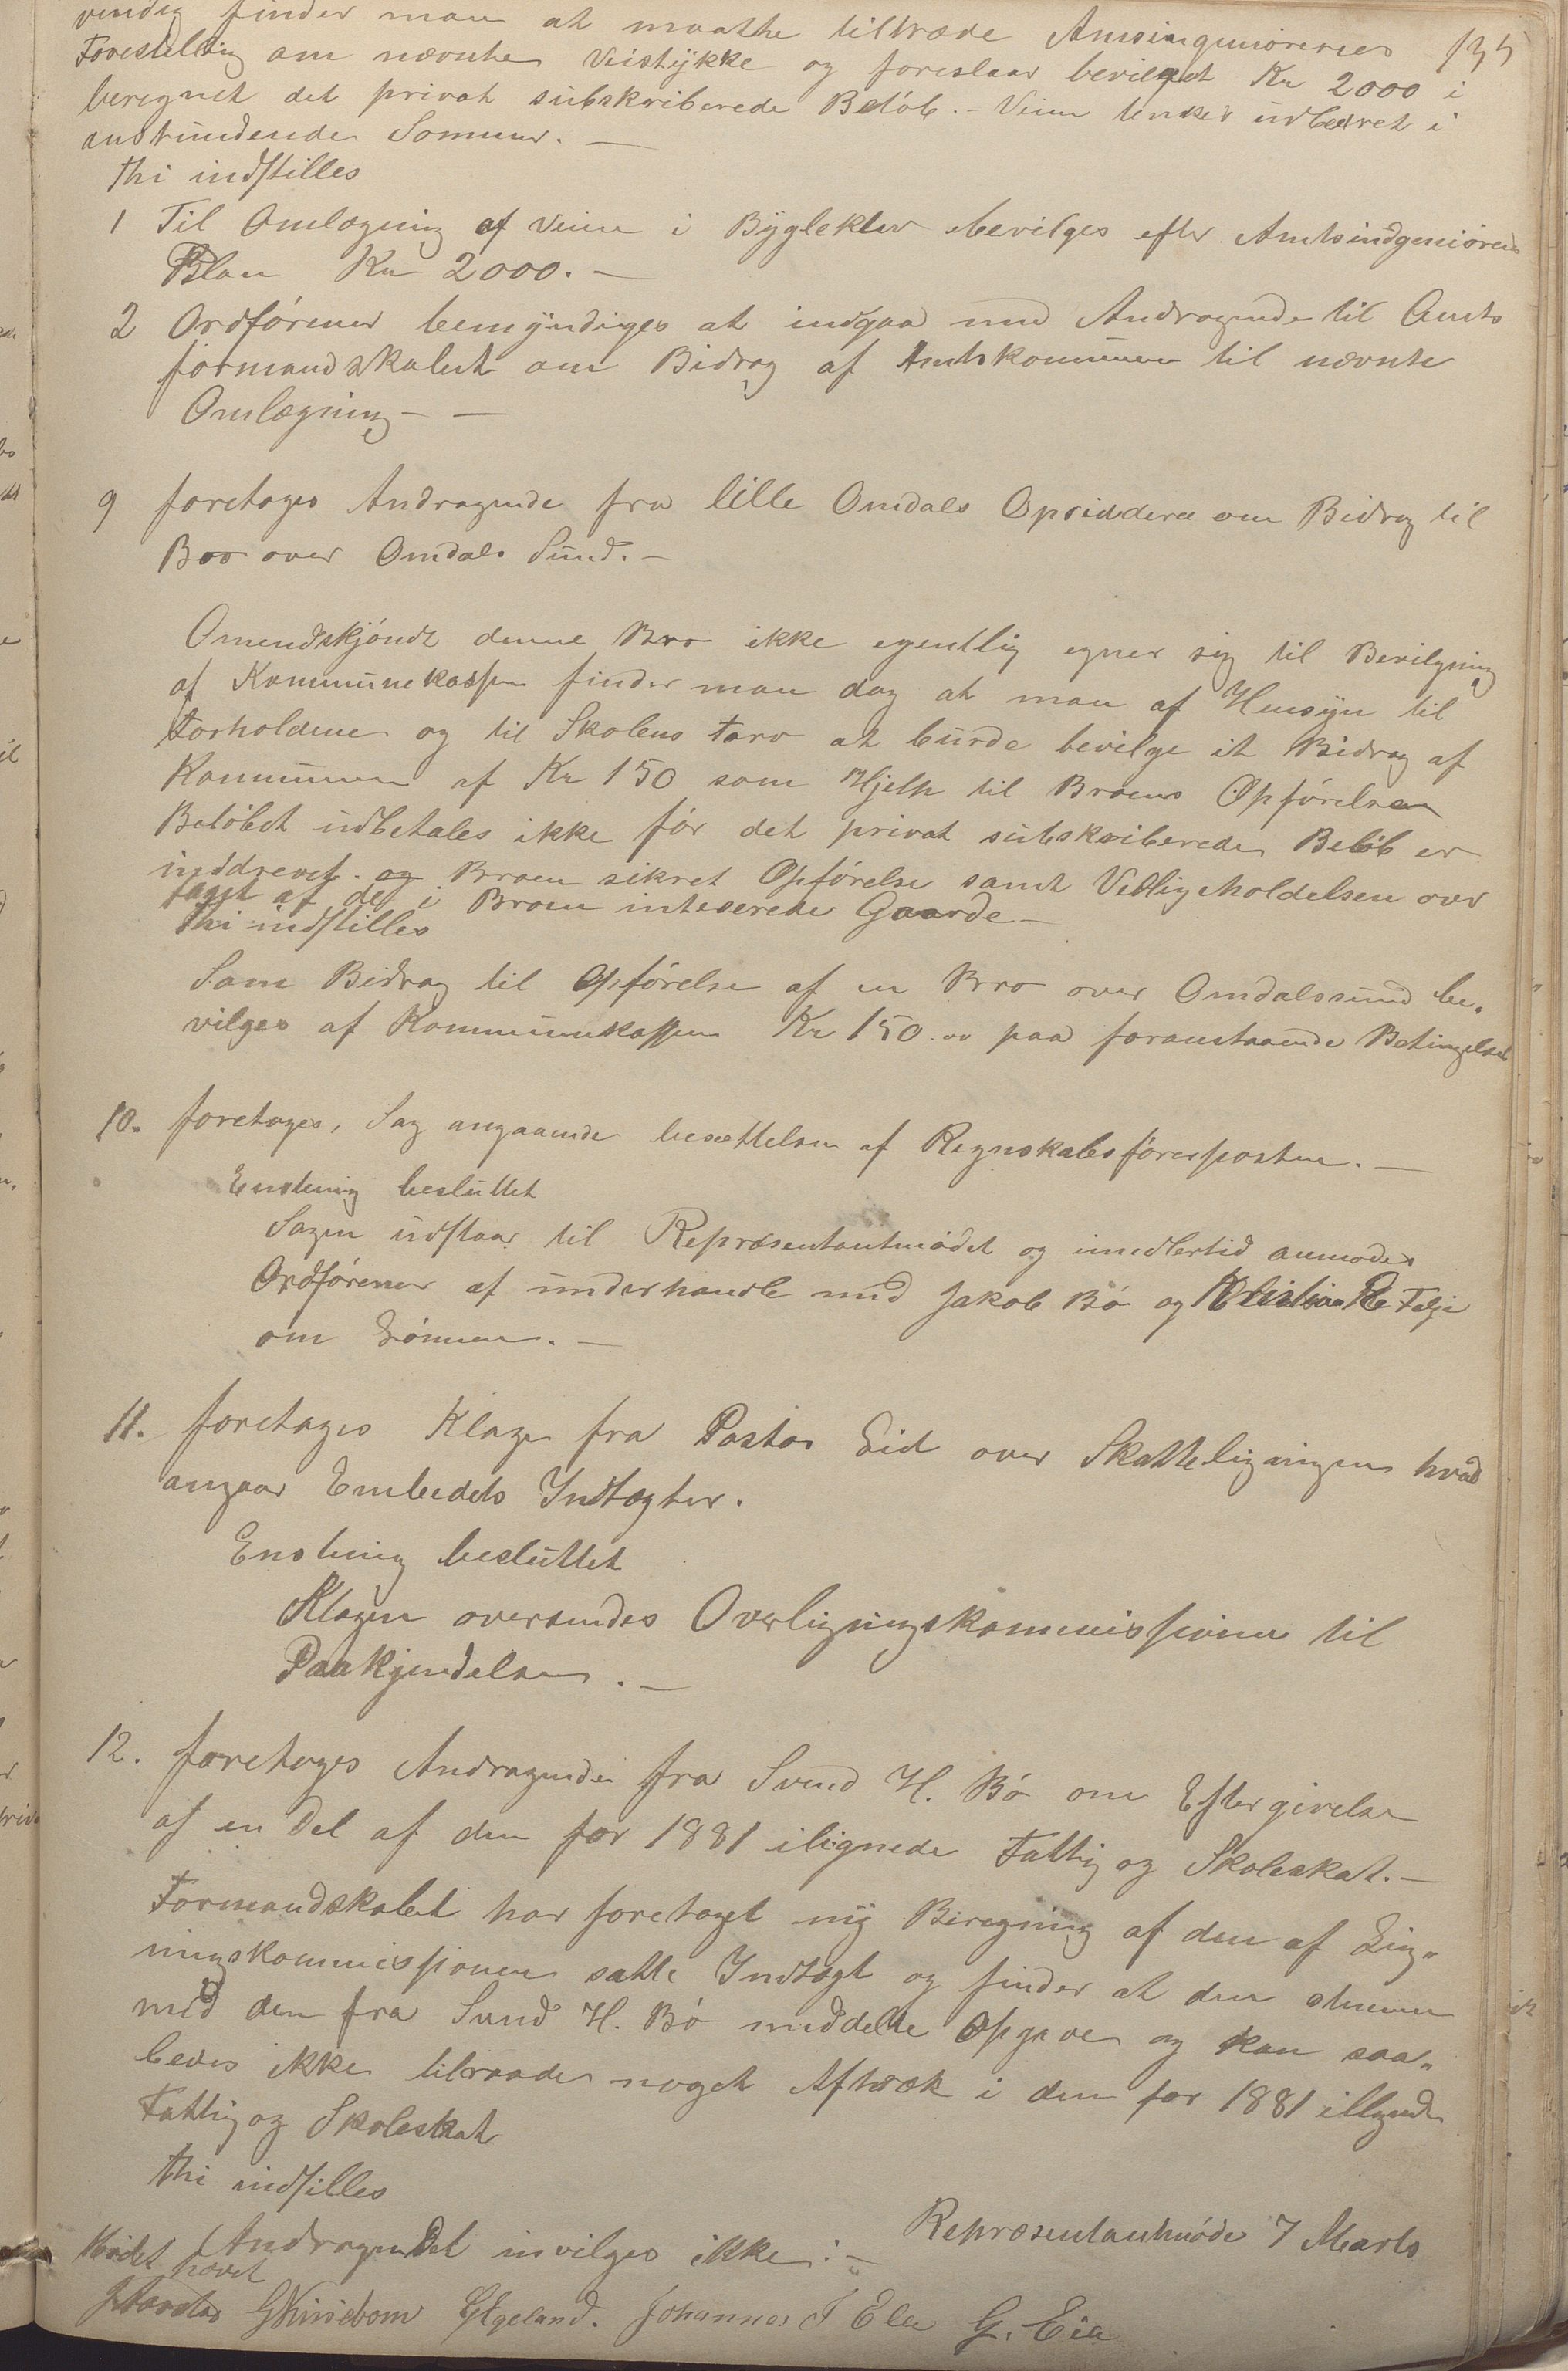 vendig finder man at maatte tiltræde Amtsingeniørenes 135
Forestilling om nævnte Veistykke og foreslaar bevilget Kr 2000 i
beregnet det privat subskriberede Beløb. - Veien tænkes udbedret i
instundende Sommer. —
thi indstilles
1 Til Omlægning af Veien i Bygleklev bevilges efter Amtsindgeniørens
Plan Kr 2000. —
2 Ordføreren bemyndiges at indgaa med Andragende til Amts
formandskabet om Bidrag af Amtskommunen til nævnte
Omlægning — —
9 foretages Andragende fra lille Omdals Opsiddere om Bidrag til
Bro over Omdals Sund. —
Omendskjøndt denne Bro ikke egentlig egner sig til Bevilgning
af Kommunekassen finder man dog at man af Hensyn til
Forholdene og til Skolens Tarv at burde bevilge et Bidrag af
Kommunen af Kr 150 som Hjelp til Broens Opførelse
Beløbet udbetales ikke før det privat subskriberede Beløb er
inddrevet. og Broen sikret Opførelse samt Vedligeholdelsen over
taget af de i Broen intereserede Gaarde —
thi indstilles
Som Bidrag til Opførelse af en Bro over Omdalssund be-
vilges af Kommunekassen Kr 150.00 paa foranstaaende Betingelser
10. foretages, Sag angaaende besættelsen af Regnskabsførerposten. —
Enstemig besluttet
Sagen udstaar til Repræsentantmødet og imedlertid anmodes
Ordføreren af underhandle med Jakob Bø og Felje
om Lønnen. —
11. foretages Klage fra Pastor Eid over Skatteligningen hvad
angaar Embedets Indtægter.
Enstemig besluttet
Klagen oversendes Overligningskommissionen til
Paakjendelse. —
12. foretages Andragende fra Svend H. Bø om Eftergivelse
af en Del af den for 1881 ilignede Fattig og Skoleskat. —
Formandskabet har foretaget ny Beregning af den af Lig-
ningskommissionen satte Indtægt og finder at den stemmer
med den fra Svend H. Bø meddelte Opgave og kan saa-
ledes ikke tilraade noget Aftræk i den for 1881 illignede
Fattig og Skoleskat
thi indstilles
Andragendet invilges ikke. — Repræsentantmøde 7 Marts
Mødet hævet
Egeland. Johannes T Eie G. Eie